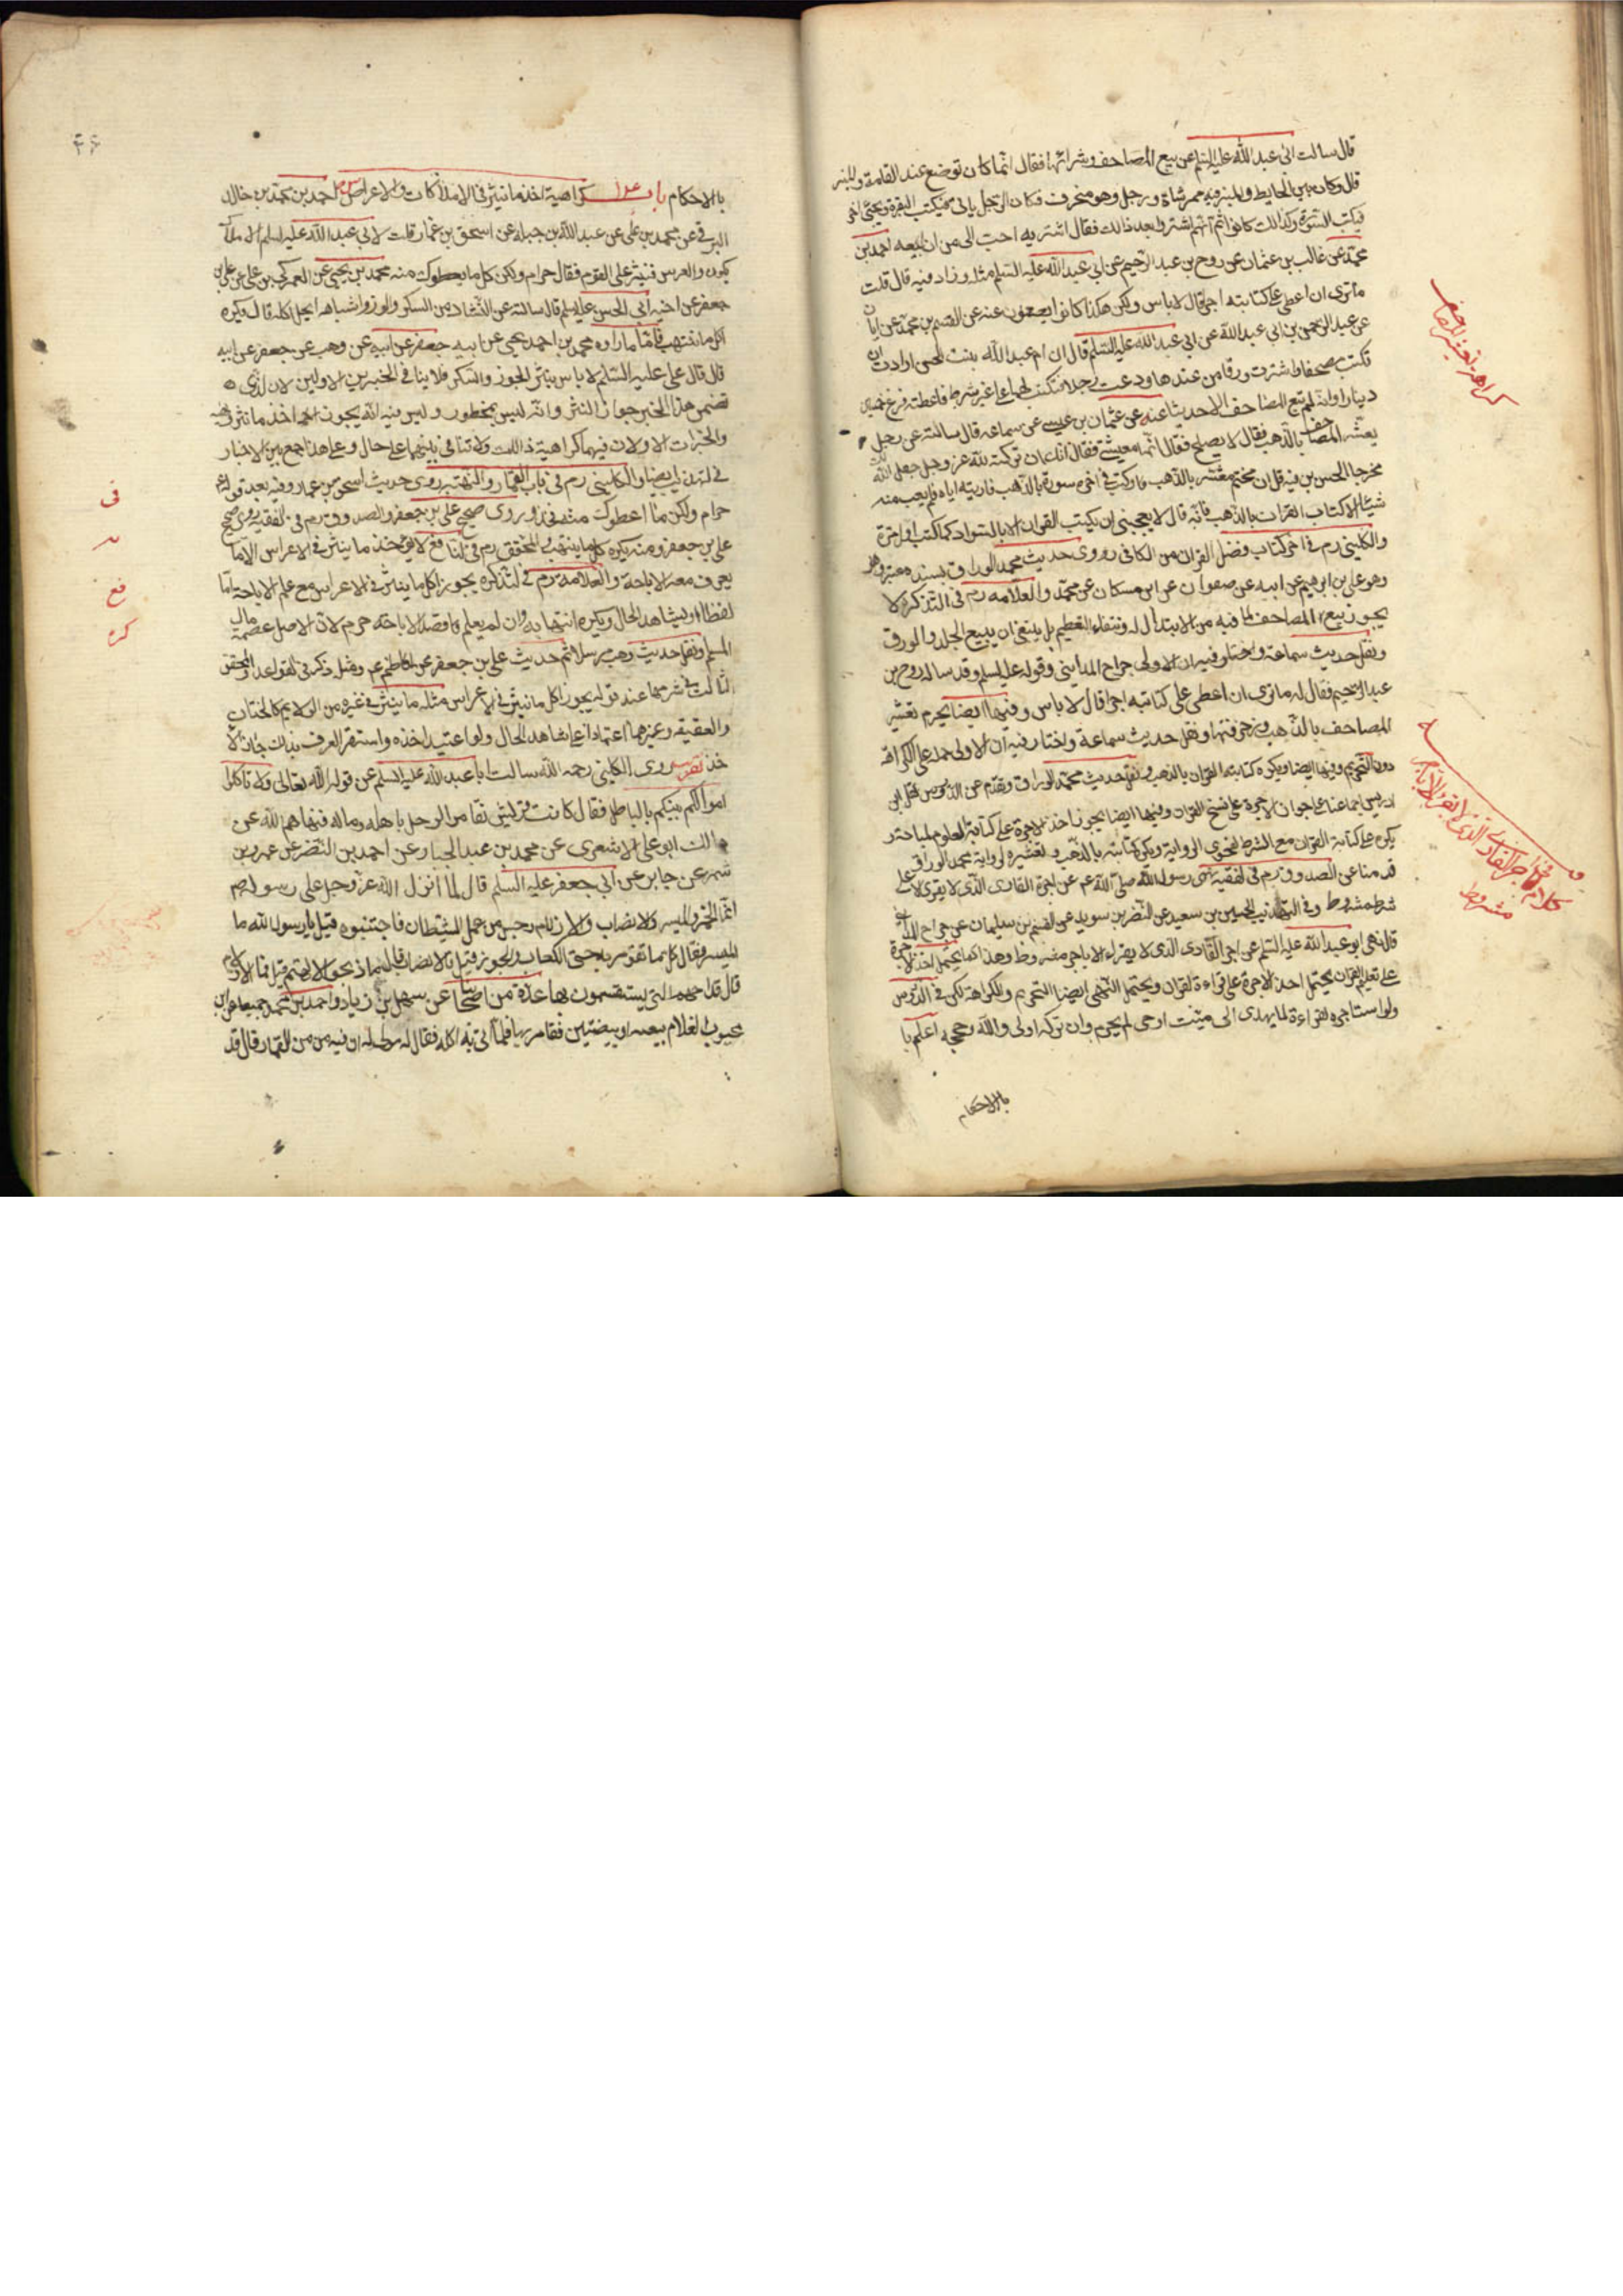 قال سالت ابى عبد الله عليه السلم عن بيع المصاحف وشرائها فقال انما كان توضع عند القامة والمنبر
قال وكان بين الحايط والمنبر قيد ممر شاة ورجل وهو منحرف فكان الرجل ياتى فيكتب البقرة ويجئ اخر
فيكتب السورة وكذلك كانوا ثم انهم اشتروا بعد ذلك فقال اشتريه احب الى من ان ابيعه احمد بن
محمد عن غالب بن عثمان عن روح بن عبد الرحيم عن ابى عبد الله عليه السلم مثله وزاد فيه قال قلت
ما ترى ان اعطى على كتابته اجرا قال لا باس ولكن هكذا كانوا يصنعون عنه عن القسم بن محمد عن ابان
عن عبد الرحمن بن ابي عبد الله عن ابى عبد الله عليه السلم قال ان ام عبد الله بنت الحسن ارادت ان
تكتب مصحفا واشترت ورقا من عندها ودعت رجلا فكتب لها على غير شرط فاعطته حين فرغ خمسين
دينارا وانه لم تبع المصاحف الا حديثا عنه عن عثمان بن عيسى عن سماعه قال سالته عن رجل
يعشر المصاحف بالذهب فقال لا يصلح فقال انه معيشتى فقال انك ان تركته لله عز وجل جعل الله
لك مخرجا الحسن بن
شيئا الا كتاب القران بالذهب فانه قال لا يعجبنى ان يكتب القران الا بالسواد كما كتب اول مرة
والكلينى رم فى اخر كتاب فضل القران من الكافى روى حديث محمد الوراق بسند معتبر
وهو على بن ابرهيم عن ابيه عن صفوان عن ابن مسكان عن محمد والعلامه رم فى التذكرة لا
يجوز بيع المصاحف لما فيه من الابتذال له وانتفاء التعظيم بل ينبغى ان يبيع الجلد والورق
ونقل حديث سماعة واختار فيه ان الاولى جراح المداينى وقوله عليه السلم وقد ساله روح بن
عبد الرحيم فقال له ما ترى ان اعطى على كتابته اجرا قال لا باس وفيها ايضا يحرم تعشير
المصاحف بالذهب وزخرفتها ونقل حديث سماعة واختار فيه ان الاولى حمله على الكراهة
دون التحريم وفيها ايضا ويكره كتابة القران بالذهب ونقل حديث محمد الوراق وتقدم عن الدروس نقل ابن
ادريس اجماعنا على جواز الاجرة على نسخ القران وفيها ايضا يجوز اخذ الاجرة على كتابة العلوم المباحة و
يكره على كتابة القران مع الشرط لفحوى الرواية ويكره كتابته بالذهب وتعشيره لرواية محمد الوراق
قد مناعن الصدوق رم فى الفقيه نهى رسول الله صلى الله عم عن اجرة القارى الذى لا يقرى الا على
شرط مشروط وفى التهذيب الحسين بن سعيد عن النضر بن سويد عن القسم بن سليمان عن جراح المداينى
قال نهى ابو عبد الله عليه السلم عن اجر القارى الذى لا يقراء الا باجر مشروط وهذا كما يحتمل اخذ الاجرة
على تعليم القران يحتمل اخذ الاجرة على قراءة القران ويحتمل النهى ايضا التحريم والكراهة لكن فى الدروس
ولو استاجره لقراءة لما يهدى الى ميت او حى لم يحرم وان تركه اولى والله وحججه اعلم با
بالاحكام
كراهة تعشير المصاحف
فى اجر القارى الذى لا يقرء الا باجر
مشروط
بالاحكام باب كراهية اخذ ما ينثر فى الاملاكات والاعراس احمد بن محمد بن خالد
البرقى عن محمد بن على عن عبد الله بن جبله عن اسحق بن عمار قلت لابى عبد الله عليه السلم الاملاك
يكون والعرس فينثر على القوم فقال حرام ولكن كل ما يعطوك منه محمد بن يحيى عن العمركى بن على عن على بن
جعفر عن اخيه ابى الحسن عليه السلم قال سالته عن النثار من السكر واللوز واشباهه ايحل اكله قال يكره
اكل ما انتهب فاما ما رواه محمد بن احمد يحيى عن ابيه جعفر عن ابيه عن وهب عن جعفر عن ابيه
قال قال على عليه السلم لا باس بنثر الجوز والسكر فلا ينافى الخبرين الاولين لان الذى
تضمن هذا الخبر جواز النثر وانه ليس بمحظور وليس فيه انه يجوز اخذ ما نثر فيه
والخبران الاولان فيهما كراهية ذلك ولا تنافى بينهما على حال وعلى هذا جمع بين الاخبار
فى التهذيب ايضا والكلينى رم فى باب القمار والنهبة روى حديث اسحق بن عمار وفيه بعد قوله
حرام ولكن ما اعطوك منه فخذ وروى صحيح على بن جعفر والصدوق رم فى الفقيه روى صحيح
على بن جعفر ومنه يكره كل ما ينتهب والمحقق رم فى النافع لا يؤخذ ما ينثر فى الاعراس الا ما
يعرف معه الاباحة والعلامة رم فى التذكرة يجوز اكل ما ينثر فى الاعراس مع علم الاباحة اما
لفظا او بشاهد الحال ويكره انتهابه وان لم يعلم قصد الاباحة حرم لان الاصل عصمة مال
المسلم ونقل حديث وهب مرسلا ثم حديث على بن جعفر عن الكاظم عم ومثل ذكر فى القواعد والمحقق
الثالث فى شرحها عند قوله يجوز اكل ما ينثر فى الاعراس مثله ما ينثر فى غيره من الولايم كالختان
والعقيقه وغيرهما اعتمادا على شاهد الحال ولو اعتيد اخذه واستقر العرف بذلك جاز الا
خذ روى الكلينى رحمه الله سالت ابا عبد الله عليه السلم عن قوله الله تعالى ولا تاكلوا
اموالكم بينكم بالباطل فقال كانت قريش تقامر الرجل باهله وماله فنهاهم الله عن
ذلك ابو على الاشعرى عن محمد بن عبد الجبار عن احمد بن النضر عن عمرو بن
شمر عن جابر عن ابى جعفر عليه السلم قال لما انزل الله عز وجل على رسوله صم
انما الخمر والميسر والانصاب والازلام رجس من عمل الشيطان فاجتنبوه قيل يا رسول الله ما
الميسر فقال كل ما تقومر به حتى الكعاب والجوز قيل فالانصاب قال ما ذبحوا لالهتهم قيل فما الازلام
قال قداحهم التى يستقسمون بها عدة من اصحابنا عن سهل بن زياد واحمد بن محمد جميعا عن ابن
محبوب الغلام ببيضة او بيضتين فقامر بها فلما اتى به اكله فقال له مولى له ان فيه من القمار قال قد
فى
يب
فع
كره